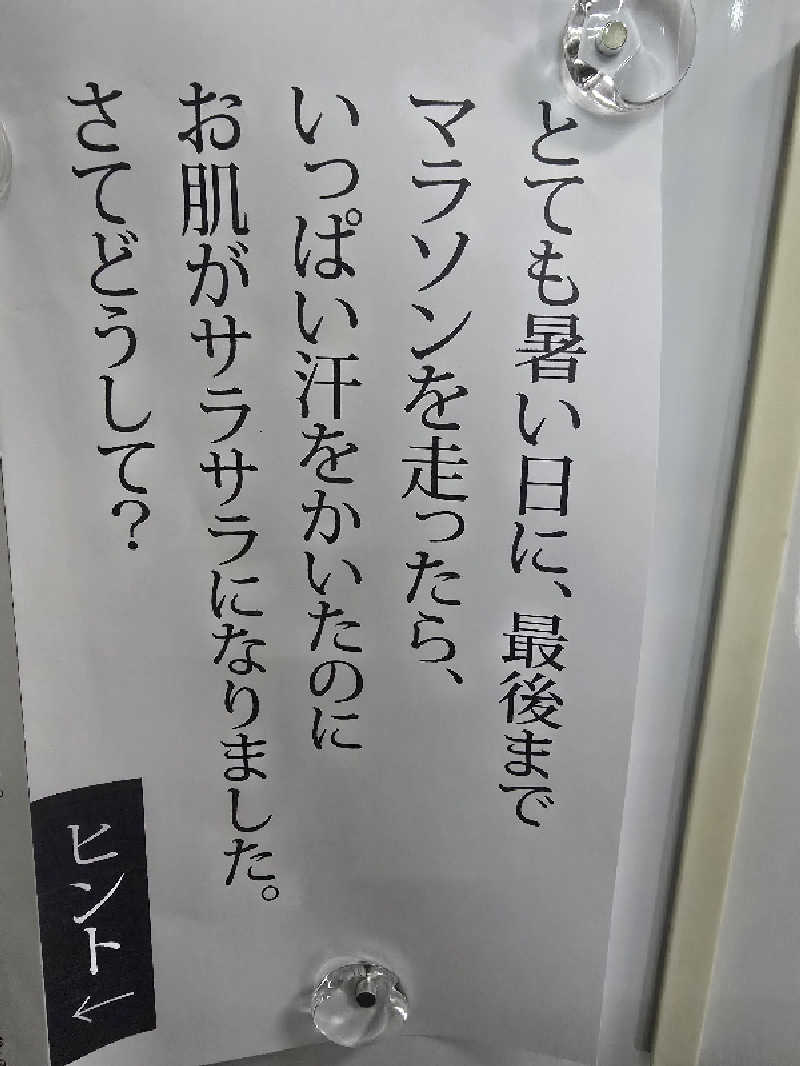 とても暑い日に、最後まで
マラソンを走ったら、
いっぱい汗をかいたのに
お肌がサラサラになりました。
さてどうして?
ヒント←